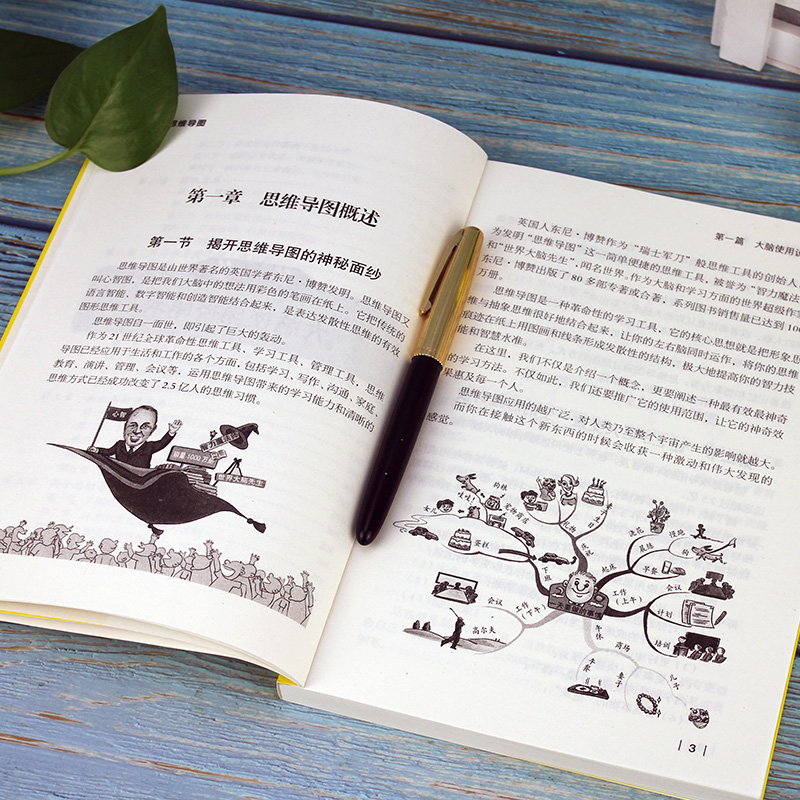 思维导图
第一章 思维导图概述
第一节 揭开思维导图的神秘面纱
思维导图是由世界著名的英国学者东尼·博赞发明。思维导图又
叫心智图，是把我们大脑中的想法用彩色的笔画在纸上。它把传统的
语言智能、数字智能和创造智能结合起来，是表达发散性思维的有效
图形思维工具。
思维导图自一面世，即引起了巨大的轰动。
作为 21 世纪全球革命性思维工具、学习工具、管理工具，思维
导图已经应用于生活和工作的各个方面，包括学习、写作、沟通、家庭、
教育、演讲、管理、会议等，运用思维导图带来的学习能力和清晰的
思维方式已经成功改变了 2.5 亿人的思维习惯。
心智
销量 1000 万
世界大脑先生
第一篇 大脑使用
英国人东尼·博赞作为“瑞士军刀”般思维工具的创始人
为发明“思维导图”这一简单便捷的思维工具，被誉为“智力魔法
和“世界大脑先生”，闻名世界。作为大脑和学习方面的世界超级作
东尼·博赞出版了 80 多部专著或合著，系列图书销售量已达到 100
万册。
思维导图是一种革命性的学习工具，它的核心思想就是把形象思
维与抽象思维很好地结合起来，让你的左右脑同时运作，将你的思维
痕迹在纸上用图画和线条形成发散性的结构，极大地提高你的智力技
能和智慧水准。
在这里，我们不仅是介绍一个概念，更要阐述一种最有效最神奇
的学习方法。不仅如此，我们还要推广它的使用范围，让它的神奇效
果惠及每一个人。
思维导图应用的越广泛，对人类乃至整个宇宙产生的影响就越大。
而你在接触这个新东西的时候会收获一种激动和伟大发现的
感觉。
狗粮
宠物商店
女儿
蛋糕
下班
礼物
生日
起床
浇花
晨练
早餐
狗
工作
（上午）
会议
计划
培训
会议
工作
（下午）
高尔夫
午休
商场
妻子
儿子
3